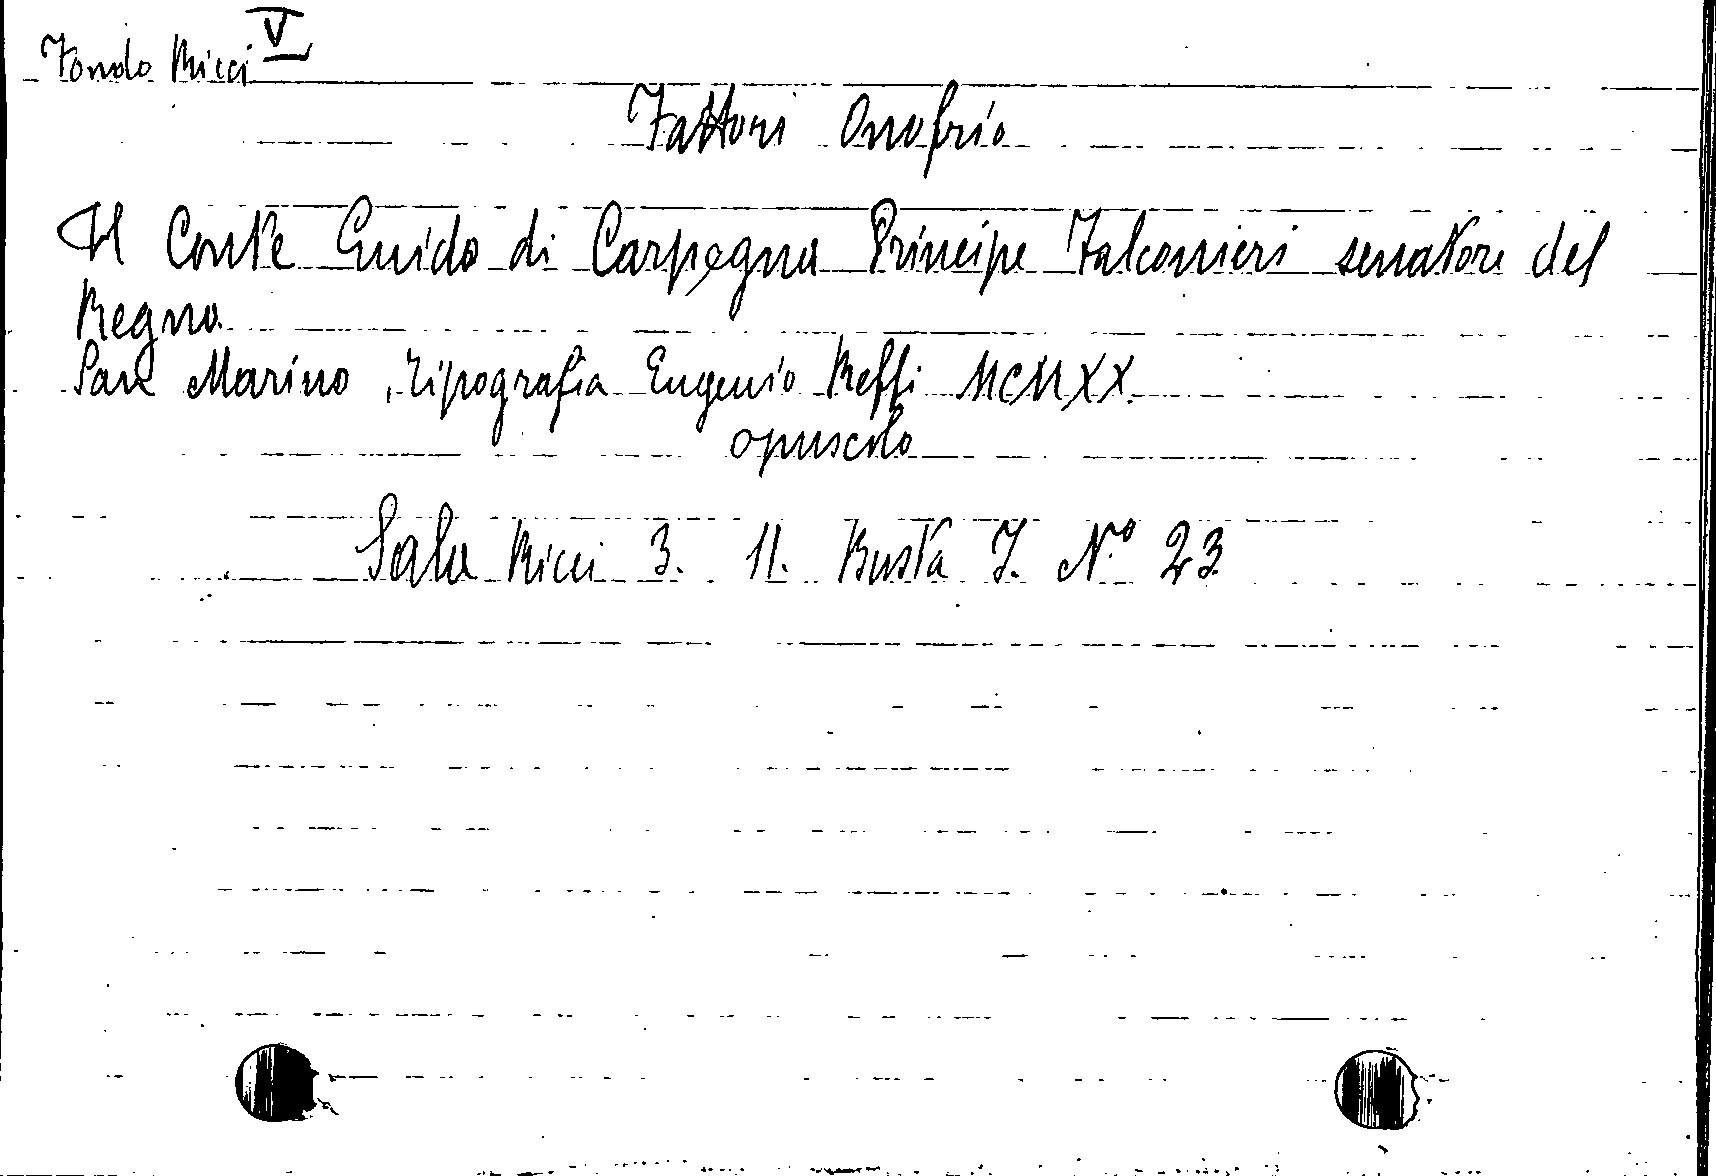 Fondo Ricci V
Fattori Onofrio
Il Conte Guido di Carpegna Principe Falconieri senatore del
Regno.
San Marino, Tipografia Eugenio Reffi MCMXX.
opuscolo
Sala Ricci 3. 11. Busta I. N.° 23